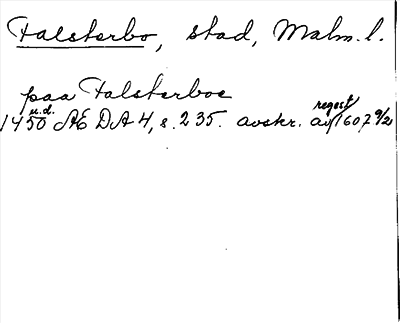 Falsterbo, stad, Malm. l.
paa Falsterboe
u.d. regest
1450 ÆDA 4, s. 235. avskr. av 1607 9/2